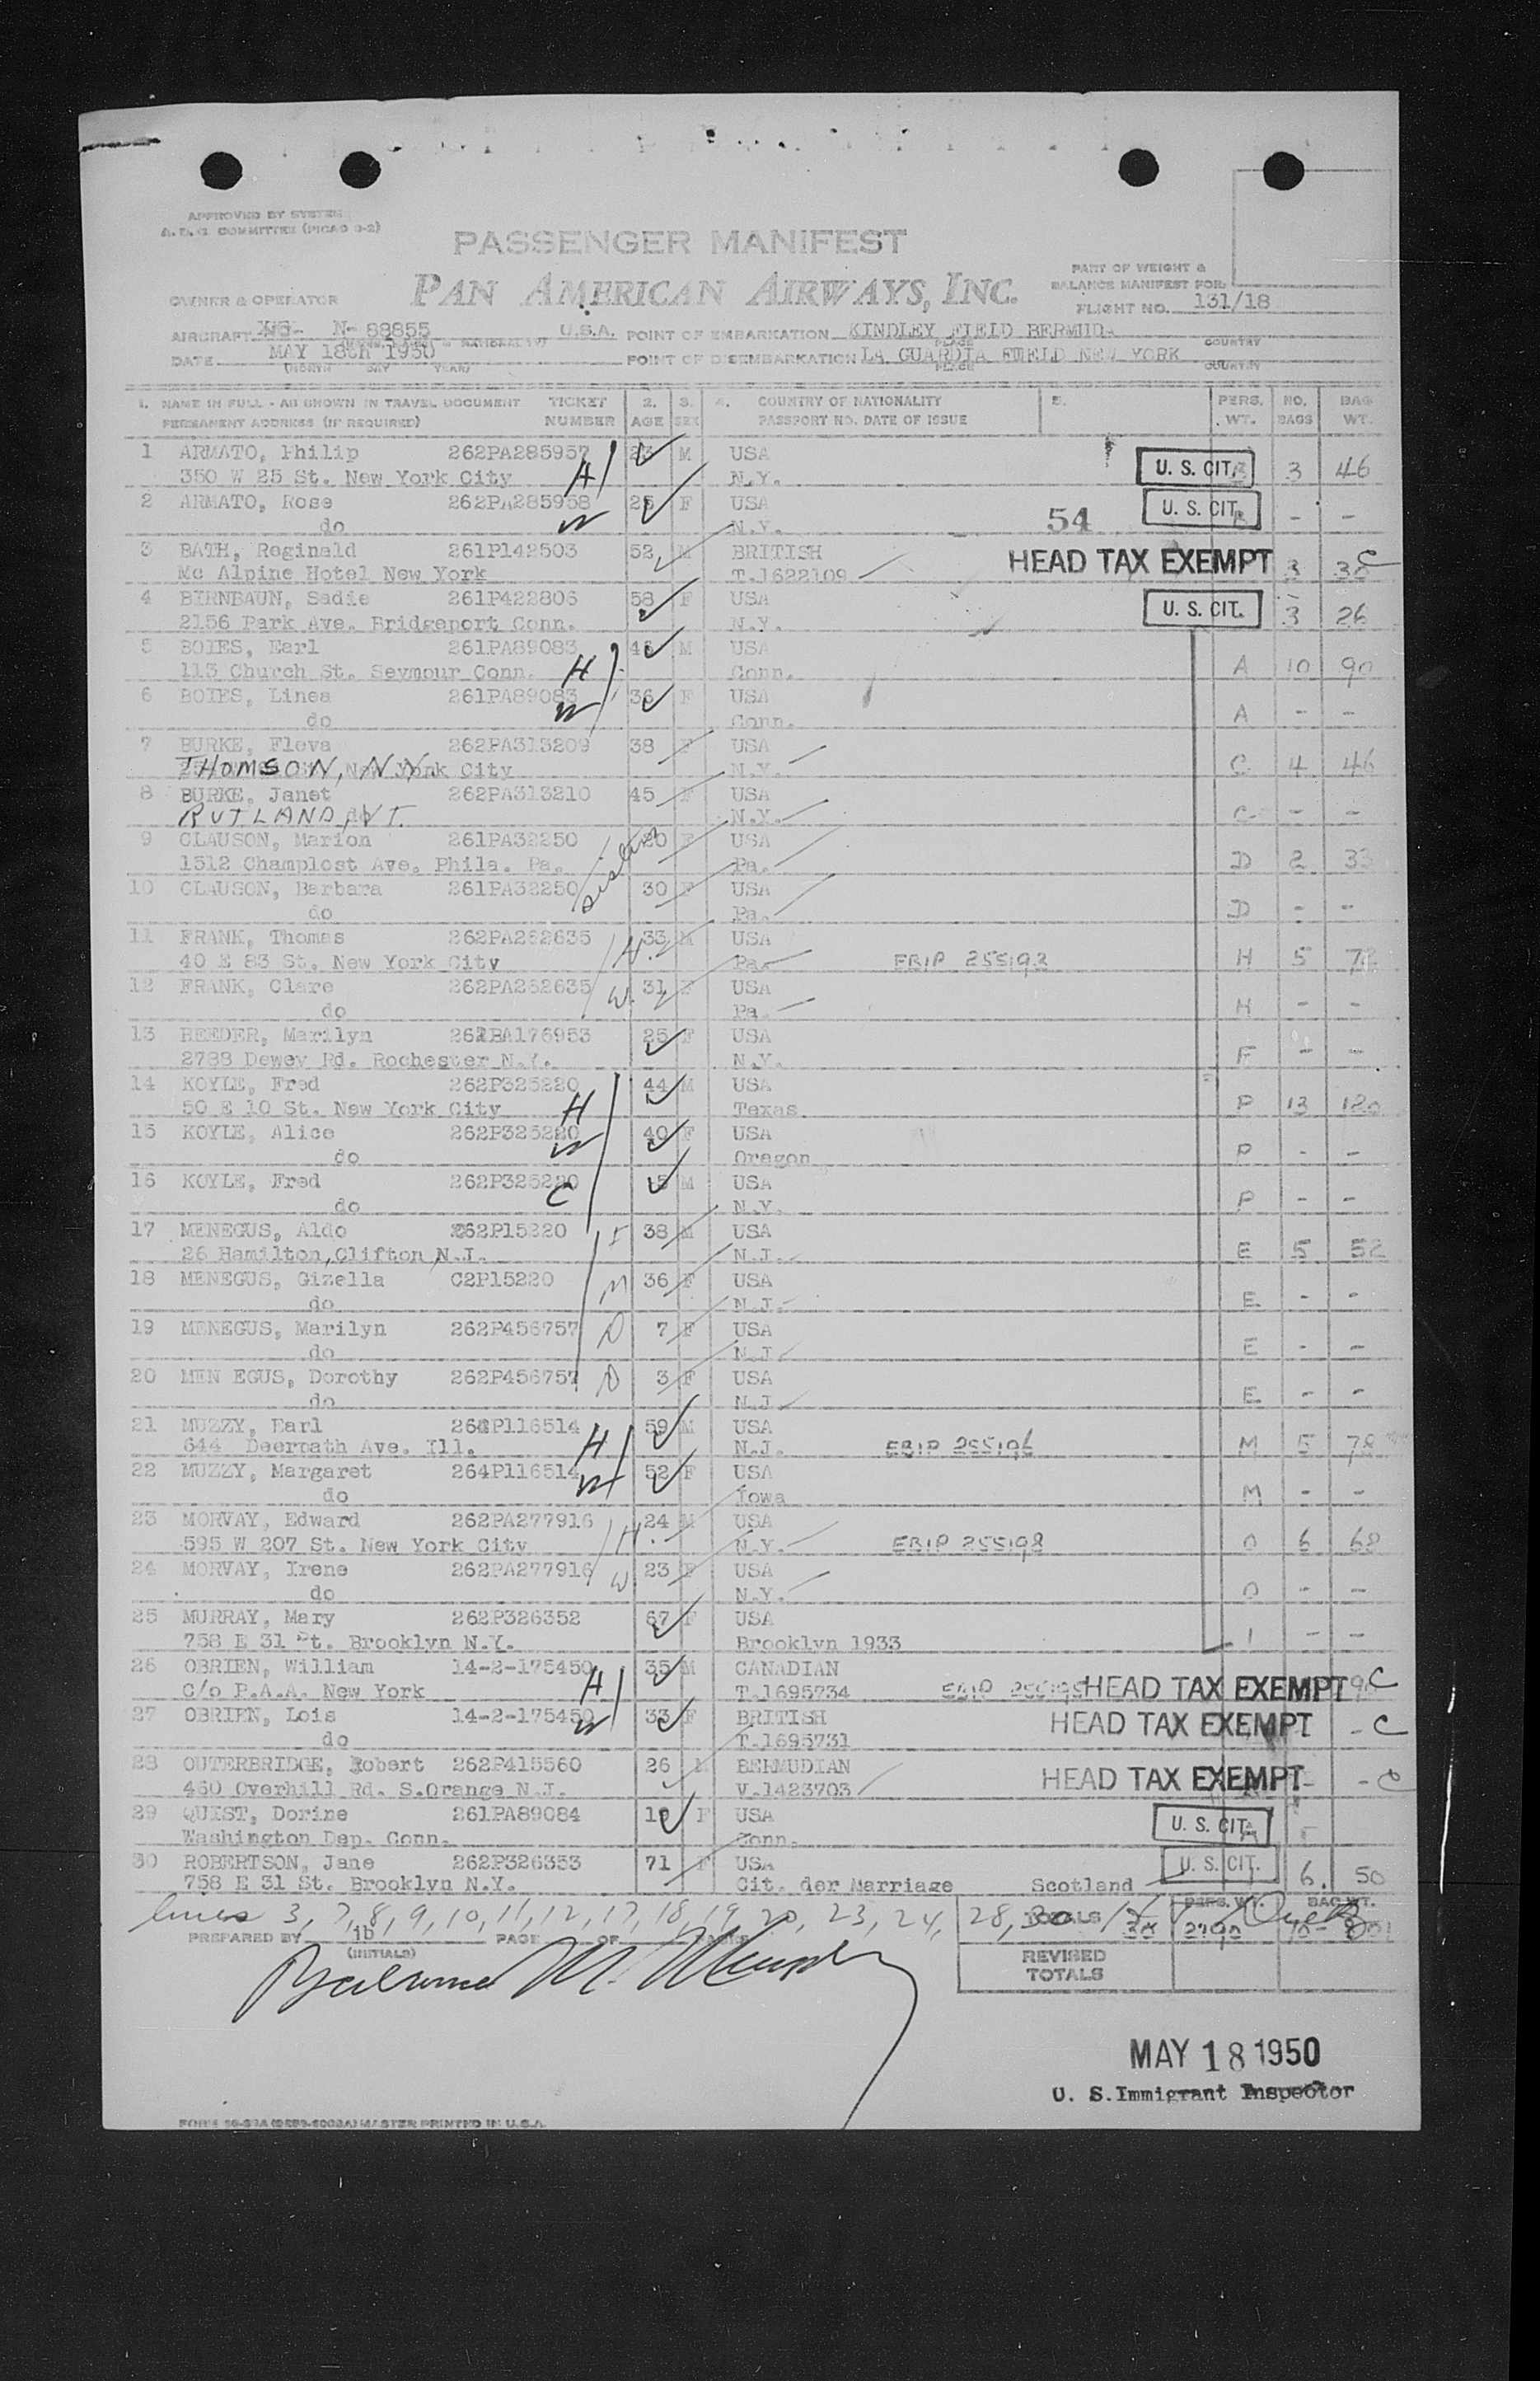 APPROVED BY SYSTEM
A.T.C. COMMITTEE (PICAO 9-2)
PASSENGER MANIFEST
PAN AMERICAN AIRWAYS, INC.
PART OF WEIGHT &
BALANCE MANIFEST FOR
FLIGHT NO. 131/18
OWNER & OPERATOR
AIRCRAFT N- 88855 U.S.A. POINT OF EMBARKATION KINDLEY FIELD BERMUDA
DATE MAY 18th 1950 POINT OF DISEMBARKATION LA GUARDIA FIELD NEW YORK
(MONTH DAY YEAR) PLACE COUNTRY
1. NAME IN FULL - AS SHOWN IN TRAVEL DOCUMENT TICKET 2. 3. 4. COUNTRY OF NATIONALITY 5. PERS. NO. BAG
PERMANENT ADDRESS (IF REQUIRED) NUMBER AGE SEX PASSPORT NO. DATE OF ISSUE WT. BAGS WT.
1 ARMATO, Philip 262PA285957 M USA U. S. CIT. 3 46
350 W 25 St. New York City H N.Y.
2 ARMATO, Rose 262PA285958 25 F USA U. S. CIT. - -
do W N.Y. 54
3 BATH, Reginald 261P142503 52 M BRITISH HEAD TAX EXEMPT 3 C
Mc Alpine Hotel New York T.1622109
4 BIRNBAUN, Sadie 261P422806 58 F USA U. S. CIT. 3 26
2156 Park Ave. Bridgeport Conn. N.Y.
5 BOIES, Earl 261PA89083 M USA
113 Church St. Seymour Conn. H Conn. A 10 90
6 BOIES, Linea 261PA89083 36 F USA
do W Conn. A - -
7 BURKE, Fleva 262PA313209 38 F USA
THOMSON, N.Y. New York City N.Y. C 4 46
8 BURKE, Janet 262PA313210 45 F USA
RUTLAND, VT. N.Y. C - -
9 CLAUSON, Marion 261PA32250 20 F USA
1512 Champlost Ave. Phila. Pa. sisters Pa. D 2 33
10 CLAUSON, Barbara 261PA32250 30 F USA
do Pa. D - -
11 FRANK, Thomas 262PA262635 H. 33 M USA
40 E 83 St. New York City Pa. EBIP 255193 H 5 72
12 FRANK, Clare 262PA262635 W. 31 F USA
do Pa. H - -
13 REEDER, Marilyn 176953 25 F USA
2788 Dewey Rd. Rochester N.Y. N.Y. F - -
14 KOYLE, Fred 262P325220 44 M USA
50 E 10 St. New York City H Texas P 13 120
15 KOYLE, Alice 262P325220 40 F USA
do W Oregon P - -
16 KOYLE, Fred 262P325220 5 M USA
do C N.Y. P - -
17 MENEGUS, Aldo 262P15220 F 38 M USA
26 Hamilton, Clifton, N.J. N.J. E 5 52
18 MENEGUS, Gizella C2P15220 M 36 F USA
do N.J. E - -
19 MENEGUS, Marilyn 262P456757 D 7 F USA
do N.J. E - -
20 MEN EGUS, Dorothy 262P456757 D 3 F USA
do N.J. E - -
21 MUZZY, Earl 264P116514 59 M USA
644 Deerpath Ave. Ill. H N.J. EBIP 255196 M 5 78
22 MUZZY, Margaret 264P116514 52 F USA
do W Iowa M - -
23 MORVAY, Edward 262PA277916 H. 24 M USA
595 W 207 St. New York City N.Y. EBIP 255198 O 6 68
24 MORVAY, Irene 262PA277916 W 23 F USA
do N.Y. O - -
25 MURRAY, Mary 262P326352 67 F USA
758 E 31 St. Brooklyn N.Y. Brooklyn 1933 1 - -
26 OBRIEN, William 14-2-175450 35 M CANADIAN
C/o P.A.A. New York H T.1695734 EBIP HEAD TAX EXEMPT C
27 OBRIEN, Lois 14-2-175450 33 F BRITISH HEAD TAX EXEMPT - C
do W T.1695731
28 OUTERBRIDGE, Robert 262P415560 26 M BERMUDIAN HEAD TAX EXEMPT - C
460 Overhill Rd. S.Orange N.J. V.1423703
29 QUIST, Dorine 261PA89084 F USA U. S. CIT.
Washington Dep. Conn. Conn.
30 ROBERTSON, Jane 262P326353 71 F USA U. S. CIT. 6 50
758 E 31 St. Brooklyn N.Y. Cit. der Marriage Scotland
lines 3, 7, 8, 9, 10, 11, 12, 17, 18, 19, 20, 23, 24, 28, 30 TOTALS PERS. WT. BAG WT.
PREPARED BY jb PAGE OF
(INITIALS)
REVISED
TOTALS
MAY 18 1950
U. S. Immigrant Inspector